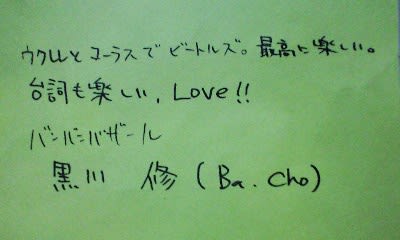 ウクレレとコーラスでビートルズ。最高に楽しい。
台詞も楽しい, Love!!
バンバンバザール
黒川 修 (Ba. cho)